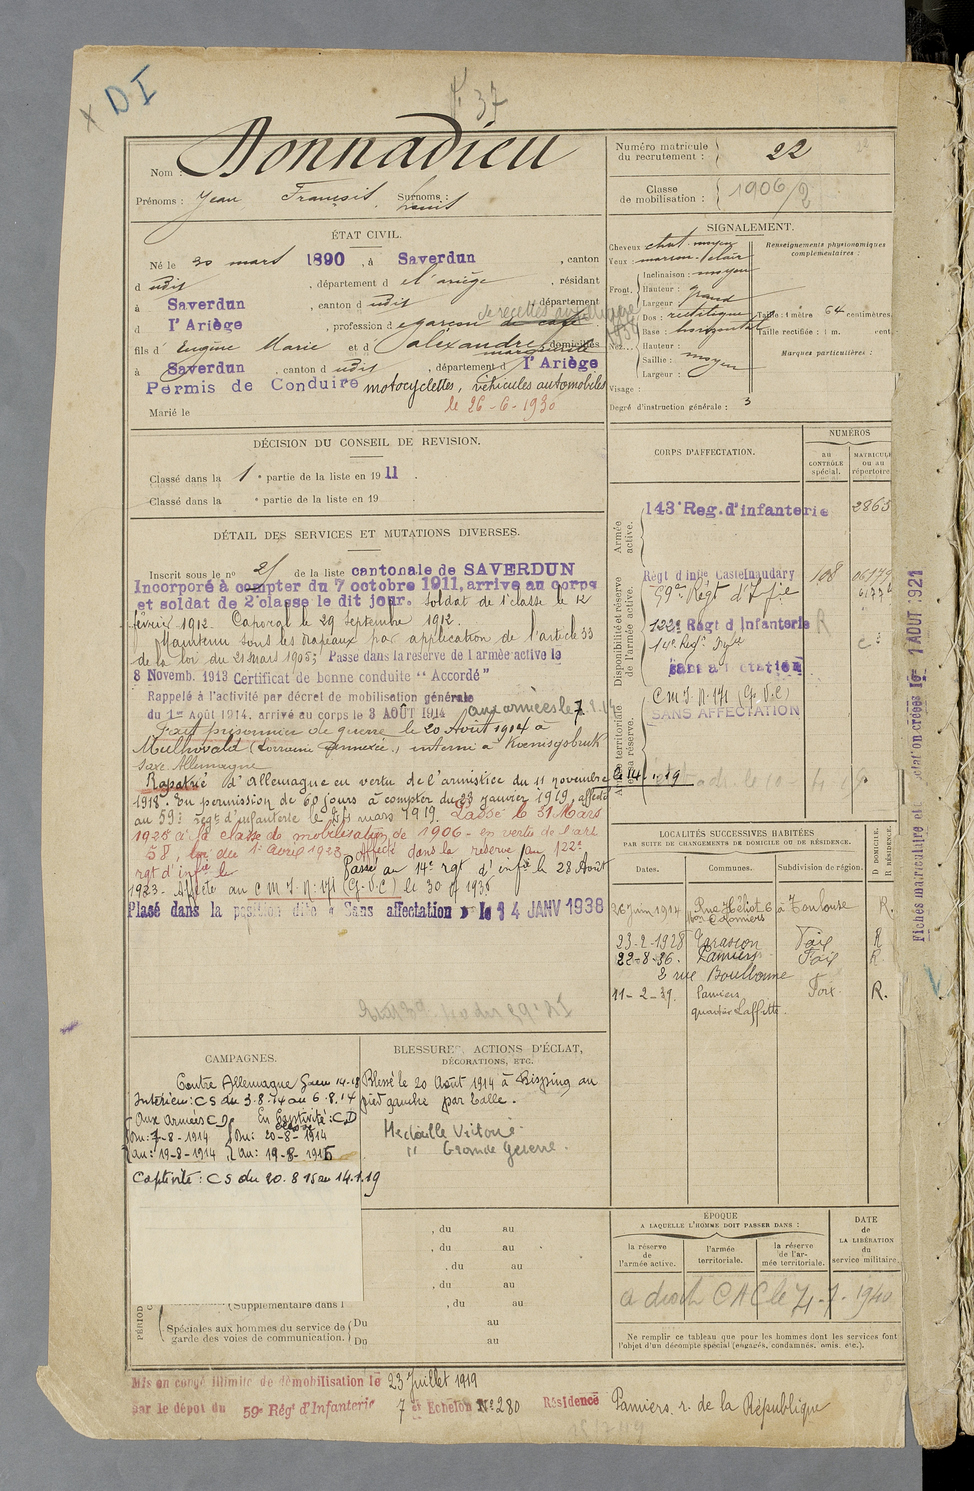 D I
Nom : Bonnadieu
Prénoms : Jean François Louis Surnoms :
ÉTAT CIVIL.
Né le 20 mars 1890, à Saverdun, canton
d udit, département d e l'ariège, résidant
à Saverdun, canton d udit, département
d l'Ariège, profession d e garçon de café
fils d' Eugène Marie et d' alexandre marguerite domiciliés
à Saverdun, canton d udit, département d l'Ariège
Permis de Conduire motocyclettes, véhicules automobiles
le 26-6-1930
Marié le
DÉCISION DU CONSEIL DE REVISION.
Classé dans la 1 e partie de la liste en 1911.
Classé dans la e partie de la liste en 19
DÉTAIL DES SERVICES ET MUTATIONS DIVERSES.
Inscrit sous le n° 21 de la liste cantonale de SAVERDUN
Incorporé à compter du 7 octobre 1911, arrive au corps
et soldat de 2e classe le dit jour. Soldat de 1e classe le 12
février 1912. Caporal le 29 Septembre 1912.
Maintenu sous les drapeaux par application de l'article 33
de la loi du 21 Mars 1905; Passe dans la réserve de l'armée active le
8 Novemb. 1913 Certificat de bonne conduite "Accordé"
Rappelé à l'activité par décret de mobilisation générale
du 1er Août 1914, arrivé au corps le 3 AOÛT 1914 aux armées le 7.8.14
Fait prisonnier de guerre le 20 Août 1914 à
(Lorraine annexée), interné à Koenigsbruk
Saxe Allemagne
Rapatrié d'Allemagne en vertu de l'armistice du 11 novembre le 14.1.19
1918. En permission de 60 jours à compter du 23 janvier 1919, affecté
au 59e régt d'infanterie le 24 mars 1919. Passé le 31 Mars
1923 à la classe de mobilisation de 1906 - en vertu de l'art
58, loi du 1er Avril 1923. Affecté dans la réserve au 122e
rgt d'infie le Passé au 14e rgt d'infie le 28 Août
1923. Affecté au C M I N° 171 (G.V.C) le 30 1935
Plasé dans la position dite "Sans affectation" le 14 JANV 1938
CAMPAGNES.
Contre Allemagne 14-18
Intérieur: CS du 3.8.14 au 6.8.14
Aux armées CD En Captivité: CD
Du: 7-8-1914 Du: 20-8-1914
au: 19-8-1914 au: 19-8-1915
Captivité: CS du 20.8.15 au 14.1.19
BLESSURES, ACTIONS D'ÉCLAT,
DÉCORATIONS, ETC.
Blessé le 20 Août 1914 à Bisping au
pied gauche par balle.
Médaille Victoire
" Grande Guerre.
, du au
, du au
, du au
, du au
Supplémentaire dans l , du au
Spéciales aux hommes du service de garde des voies de communication. Du au
Du au
Mis en congé illimité de démobilisation le 23 Juillet 1919
par le dépôt du 59e Régt d'Infanterie 7e Echelon N° 280 Résidence Pamiers, r. de la République
Numéro matricule du recrutement : 22
Classe de mobilisation : 1906/2
SIGNALEMENT.
Cheveux chat. moyen
Yeux : marron clair
Front. Inclinaison : moyen
Hauteur : grand
Largeur
Nez. Dos : rectiligne
Base : horizontal
Hauteur :
Saillie : moyen
Largeur :
Visage :
Renseignements physionomiques complémentaires :
Taille : 1 mètre 64 centimètres.
Taille rectifiée : 1 m. cent.
Marques particulières :
Degré d'instruction générale : 3
CORPS D'AFFECTATION.
NUMÉROS
au contrôle spécial.
MATRICULE ou au répertoire.
Armée active.
143e Reg. d'infanterie 2865
Disponibilité et réserve de l'armée active.
Régt d'infie Castelnaudary 108
59e Régt d'Infie
122e Régt d'Infanterie R
14e Regt Infie
SANS AFFECTATION
Armée territoriale et sa réserve.
C M I N° 171 (G.V.C)
SANS AFFECTATION
LOCALITÉS SUCCESSIVES HABITÉES
PAR SUITE DE CHANGEMENTS DE DOMICILE OU DE RÉSIDENCE.
Dates. Communes. Subdivision de région. D DOMICILE. R RÉSIDENCE.
26 Juin 1914 Rue Héliot 6 à Toulouse R.
23-2-1928 Tarascon Foix R
22-8-36. Pamiers Foix R
2 rue Boulbonne
11-2-39. Pamiers Foix. R.
quartier Laffitte.
ÉPOQUE
A LAQUELLE L'HOMME DOIT PASSER DANS :
la réserve de l'armée active.
l'armée territoriale.
la réserve de l'armée territoriale.
DATE de LA LIBÉRATION du service militaire.
a droit C A C le 1940
Ne remplir ce tableau que pour les hommes dont les services font
l'objet d'un décompte spécial (engagés, condamnés, omis, etc.).
1 AOUT 1921